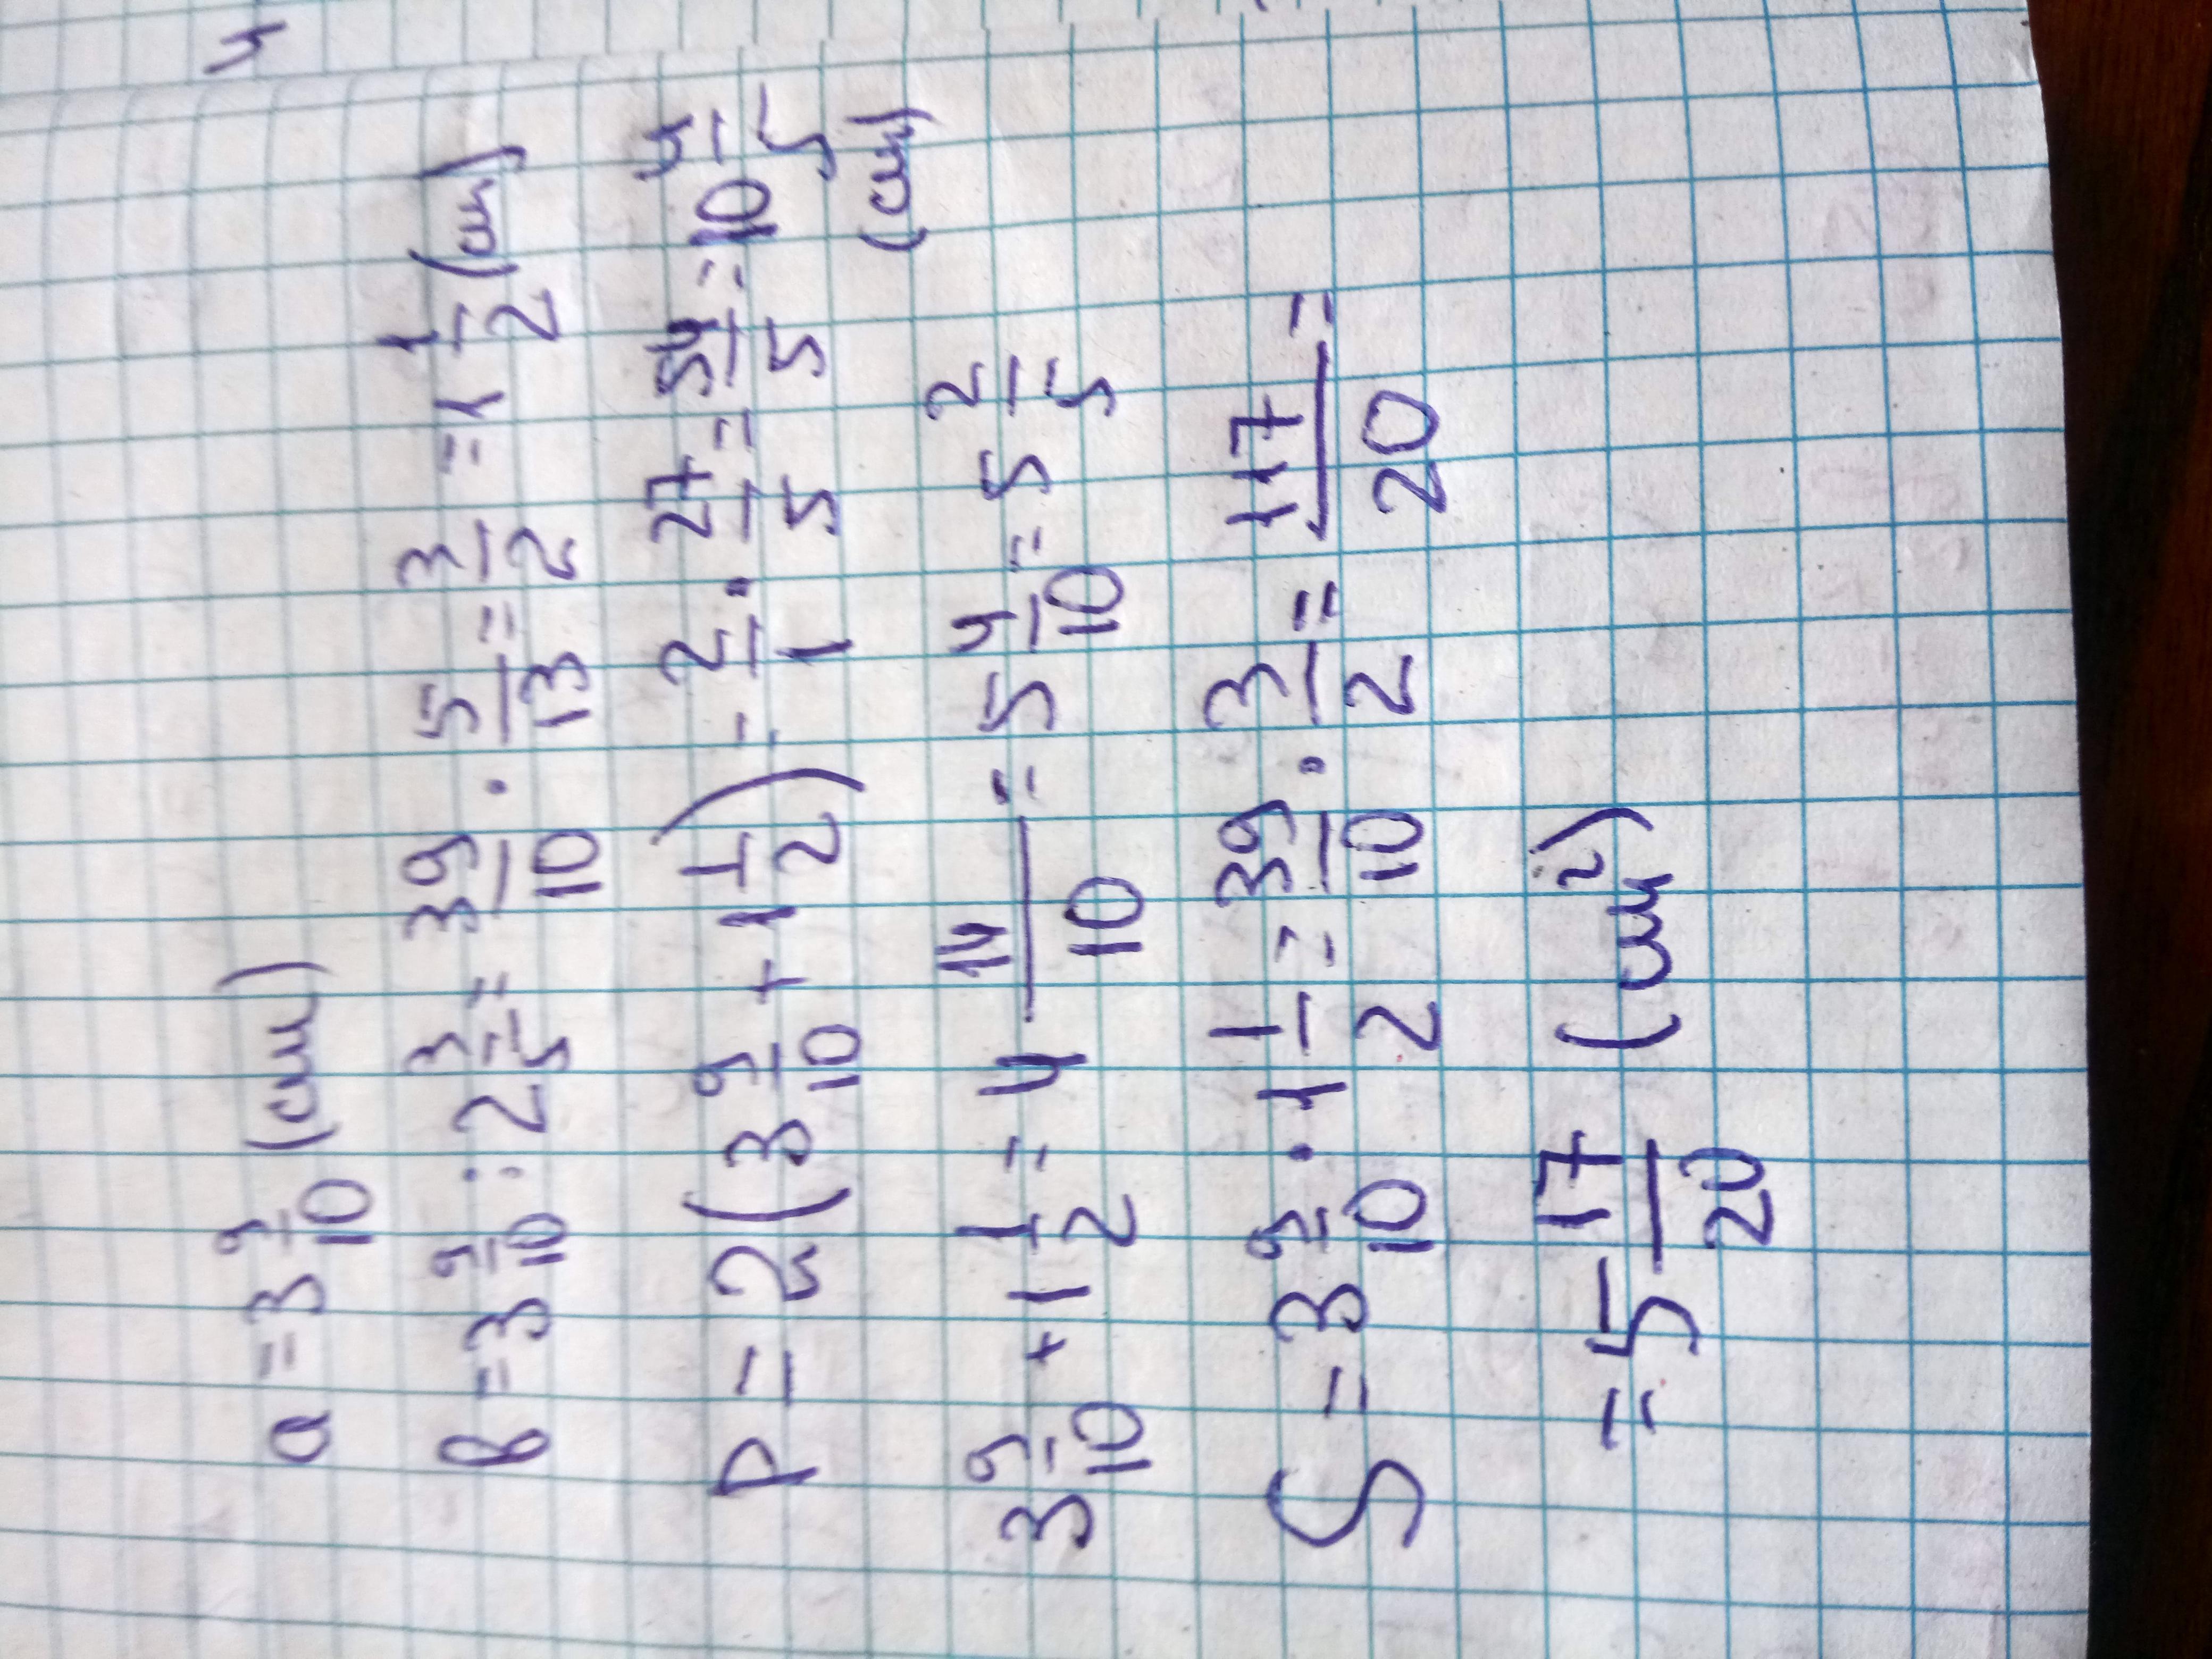 4
a = 3 9/10 (см)
в = 3 9/10 : 2 3/5 = 39/10 · 5/13 = 3/2 = 1 1/2 (см)
P = 2 (3 9/10 + 1 1/2) = 2/1 · 27/5 = 54/5 = 10 4/5
(см)
3 9/10 + 1 1/2 = 4 14/10 = 5 4/10 = 5 2/5
S = 3 9/10 · 1 1/2 = 39/10 · 3/2 = 117/20 =
= 5 17/20 (см²)